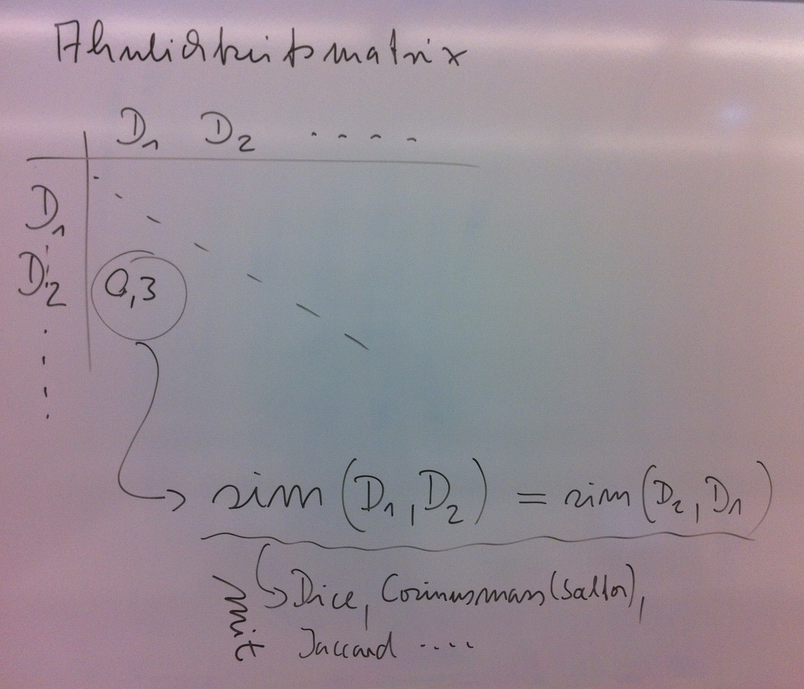 Ähnlichkeitsmatrix
D1 D2 . . . .
D1
D2 0,3
sim (D1, D2) = sim (D2, D1)
mit Dice, Cosinusmass (Salton),
Jaccard ....